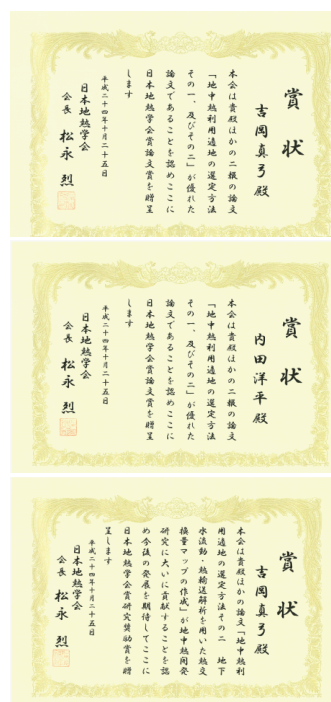 賞状
吉岡真弓殿
本会は貴殿ほかの二報の論文
「地中熱利用適地の選定方法
その一、及びその二」が優れた
論文であることを認めここに
日本地熱学会賞論文賞を贈呈
します
平成二十四年十月二十五日
日本地熱学会
会長 松永 烈
賞状
内田洋平殿
本会は貴殿ほかの二報の論文
「地中熱利用適地の選定方法
その一、及びその二」が優れた
論文であることを認めここに
日本地熱学会賞論文賞を贈呈
します
平成二十四年十月二十五日
日本地熱学会
会長 松永 烈
賞状
吉岡真弓殿
本会は貴殿ほかの論文「地中熱利
用適地の選定方法その二 地下
水流動・熱輸送解析を用いた熱交
換量マップの作成」が地中熱開発
研究に大いに貢献することを認
め今後の発展を期待してここに
日本地熱学会賞研究奨励賞を贈
呈します
平成二十四年十月二十五日
日本地熱学会
会長 松永 烈